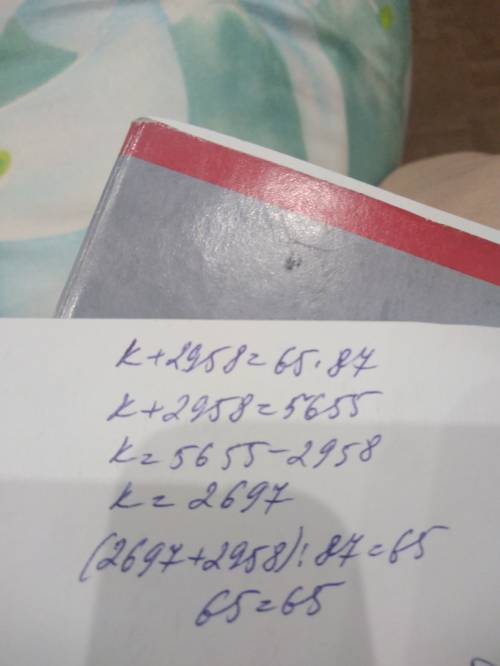 к+2958=65·87
к+2958=5655
к=5655-2958
к= 2697
(2697+2958):87=65
65=65